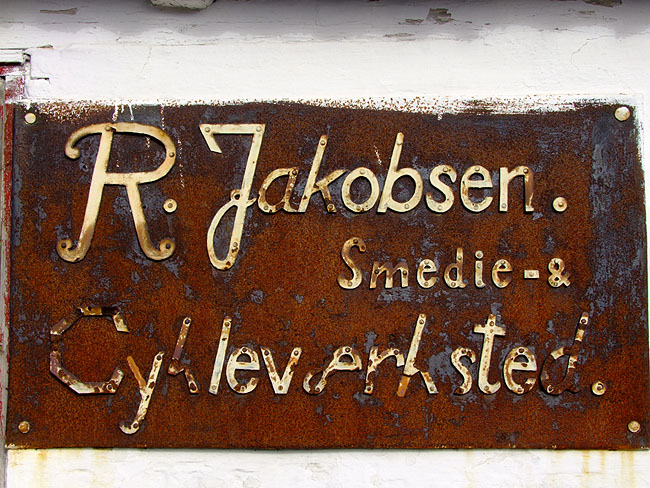 R. Jakobsen.
Smedie-&
Cykleværksted.